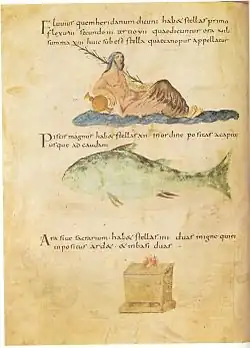 Fluvius quem heridanum dicunt habet stellas primo
flexu iii secundo iii tertio vii quae dicuntur ora nili
summa xiii huic subest stella quae canopus appellatur
Piscis magnus habet stellas xii in ordine positas a capite
usque ad caudam
Ara sive sacrarium habet stellas iiii duas in igne qui ei
inpositus ardet & in basi duas